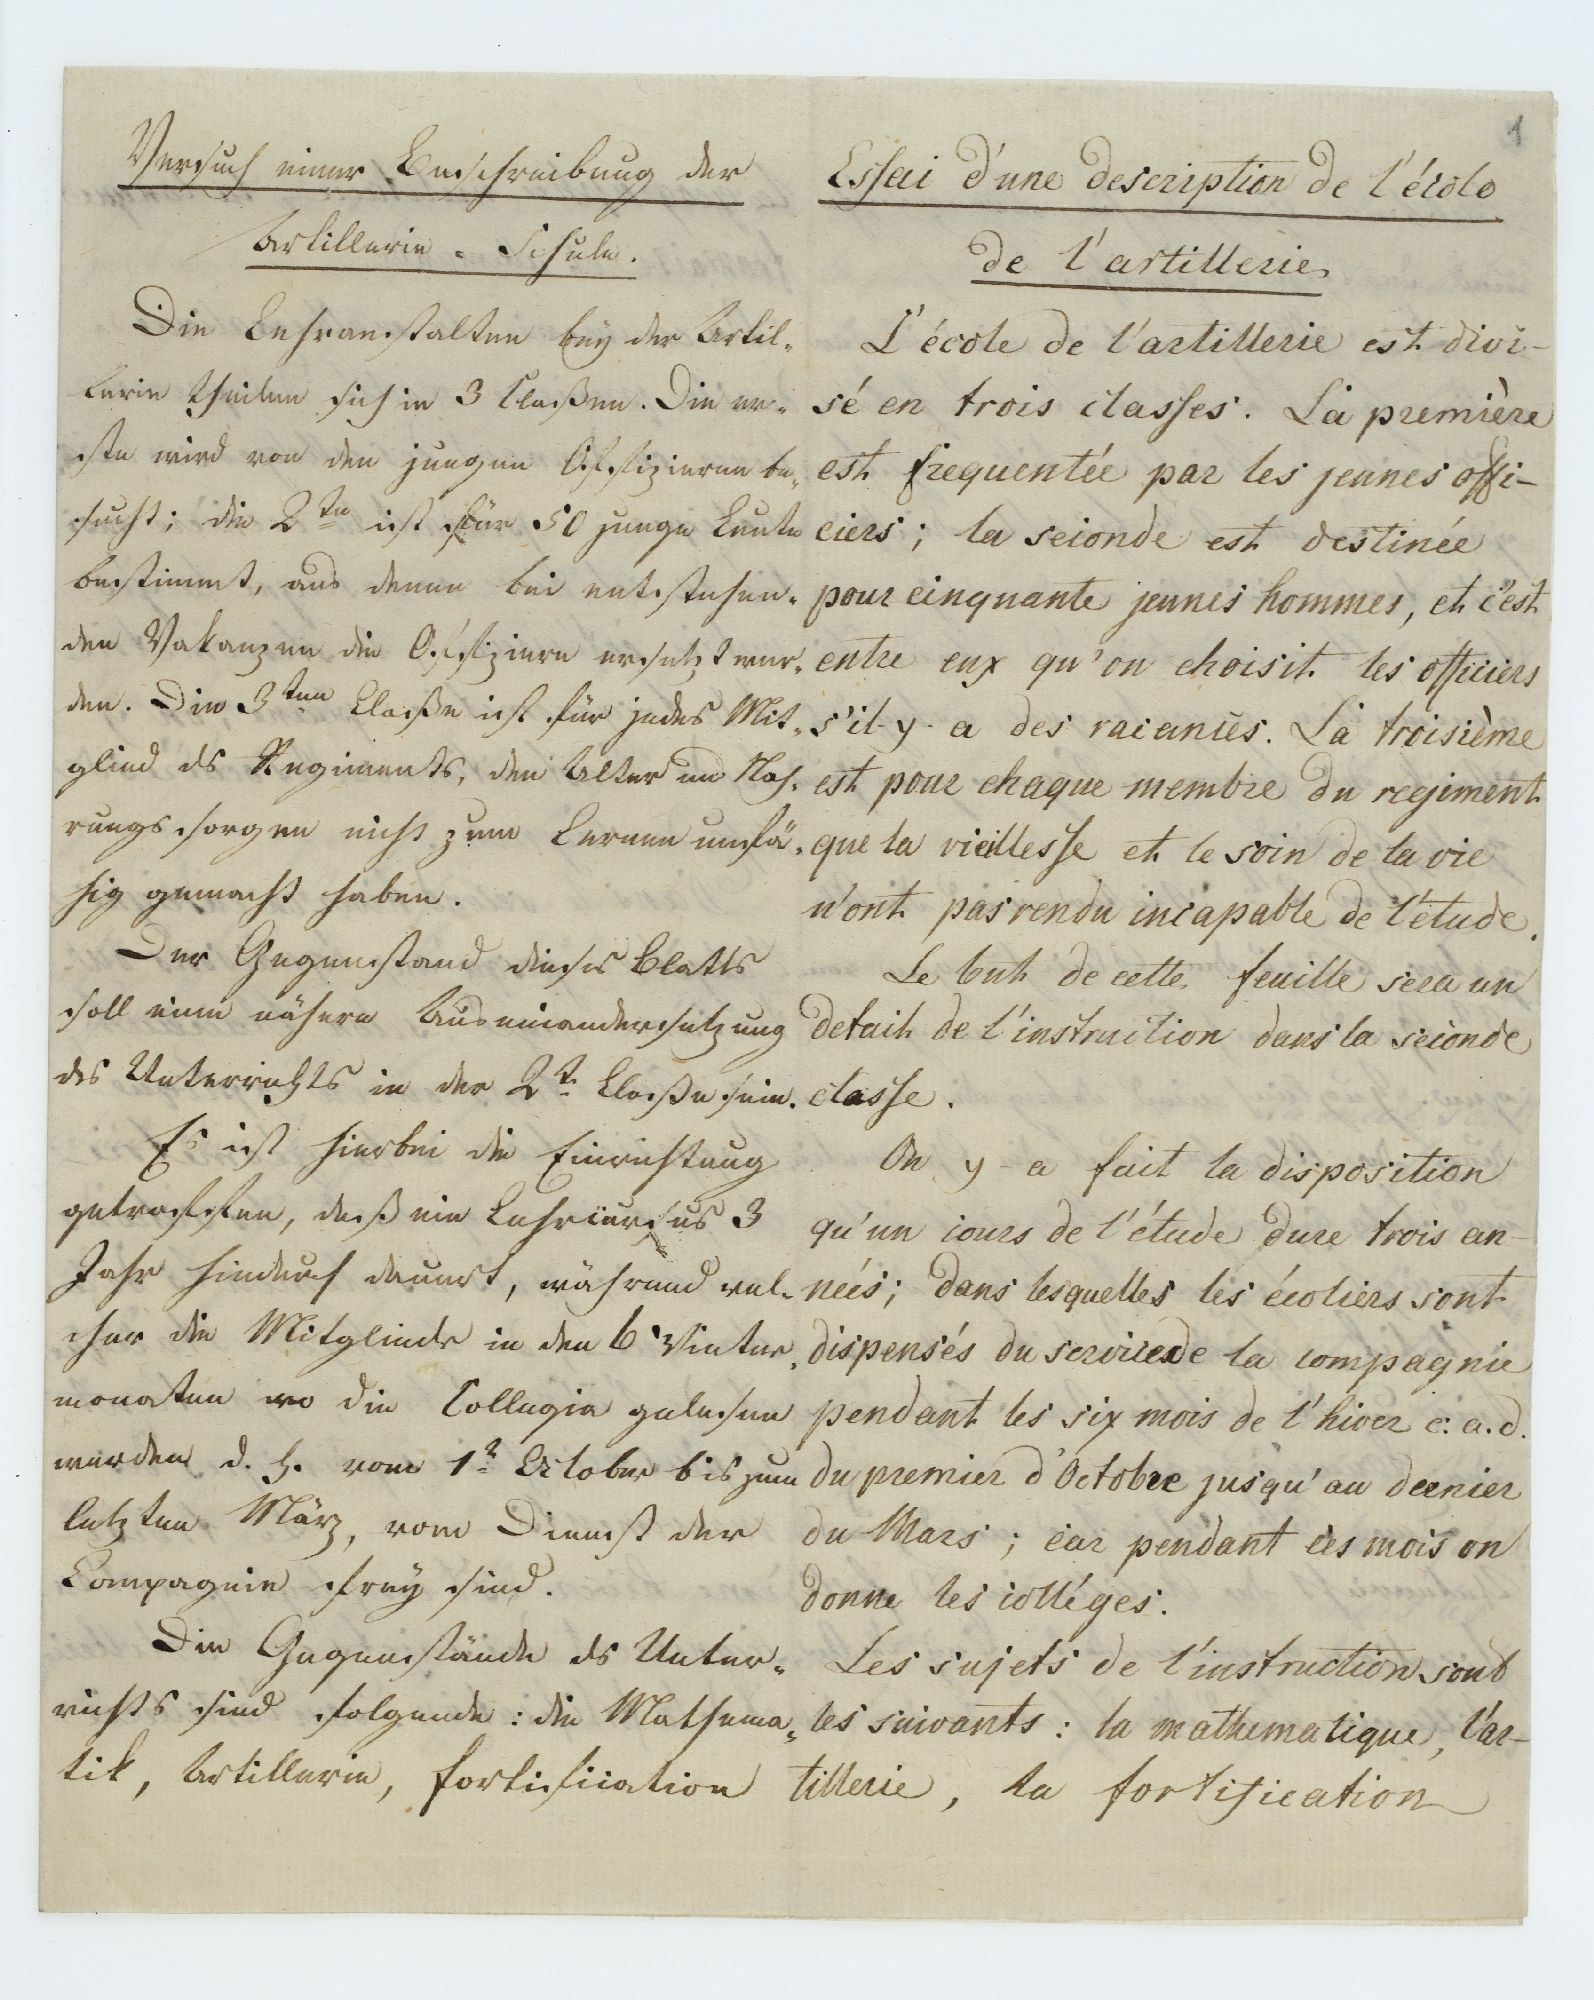 1
Versuch einer Beschreibung der
Artillerie-Schule.
Die Lehranstalten bey der Artil-
lerie theilen sich in 3 Claßen. Die er-
ste wird von den jungen Offizieren be-
sucht; die 2te ist für 50 junge Leute
bestimmt, aus denen bei entstehen-
den Vakanzen die Offiziere ersetzt wer-
den. Die 3ten Claße ist für jedes Mit-
glied des Regiments, den Alter und Nah-
rungssorgen nicht zum Lernen unfä-
hig gemacht haben.
Der Gegenstand dieses Blatts
soll eine nähere Auseinandersetzung
des Unterrichts in der 2t. Claße sein.
Es ist hierbei die Einrichtung
getroffen, daß ein Lehrcursus 3
Jahr hindurch dauert, während wel-
cher die Mitglieder in den 6 Winter-
monaten wo die Collegia gelesen
werden d. h. vom 1t October bis zum
letzten März, vom Dienst der
Compagnie frey sind.
Die Gegenstände des Unter-
richts sind folgende: die Mathema-
tik, Artillerie, Fortification
Essai d'une description de l'école
de l'artillerie
L'école de l'artillerie est divi-
sé en trois classes. La première
est frequentée par les jeunes offi-
ciers; la seconde est destinée
pour cinquante jeunes hommes, et c'est
entre eux qu'on choisit les officiers
s'il-y-a des vacances. La troisième
est pour chaque membre du regiment
que la vieillesse et le soin de la vie
n'ont pas rendu incapable de l'étude.
Le but de cette feuille sera un
detail de l'instruction dans la seconde
classe.
On y-a fait la disposition
qu'un cours de l'étude dure trois an-
neés; dans lesquelles les écoliers sont
dispensés du service de la compagnie
pendant les six mois de l'hiver c.a.d.
du premier d'Octobre jusqu'au dernier
du Mars; car pendant ces mois on
donne les colléges.
Les sujets de l'instruction sont
les suivants: la mathematique, l'ar-
tillerie, la fortification